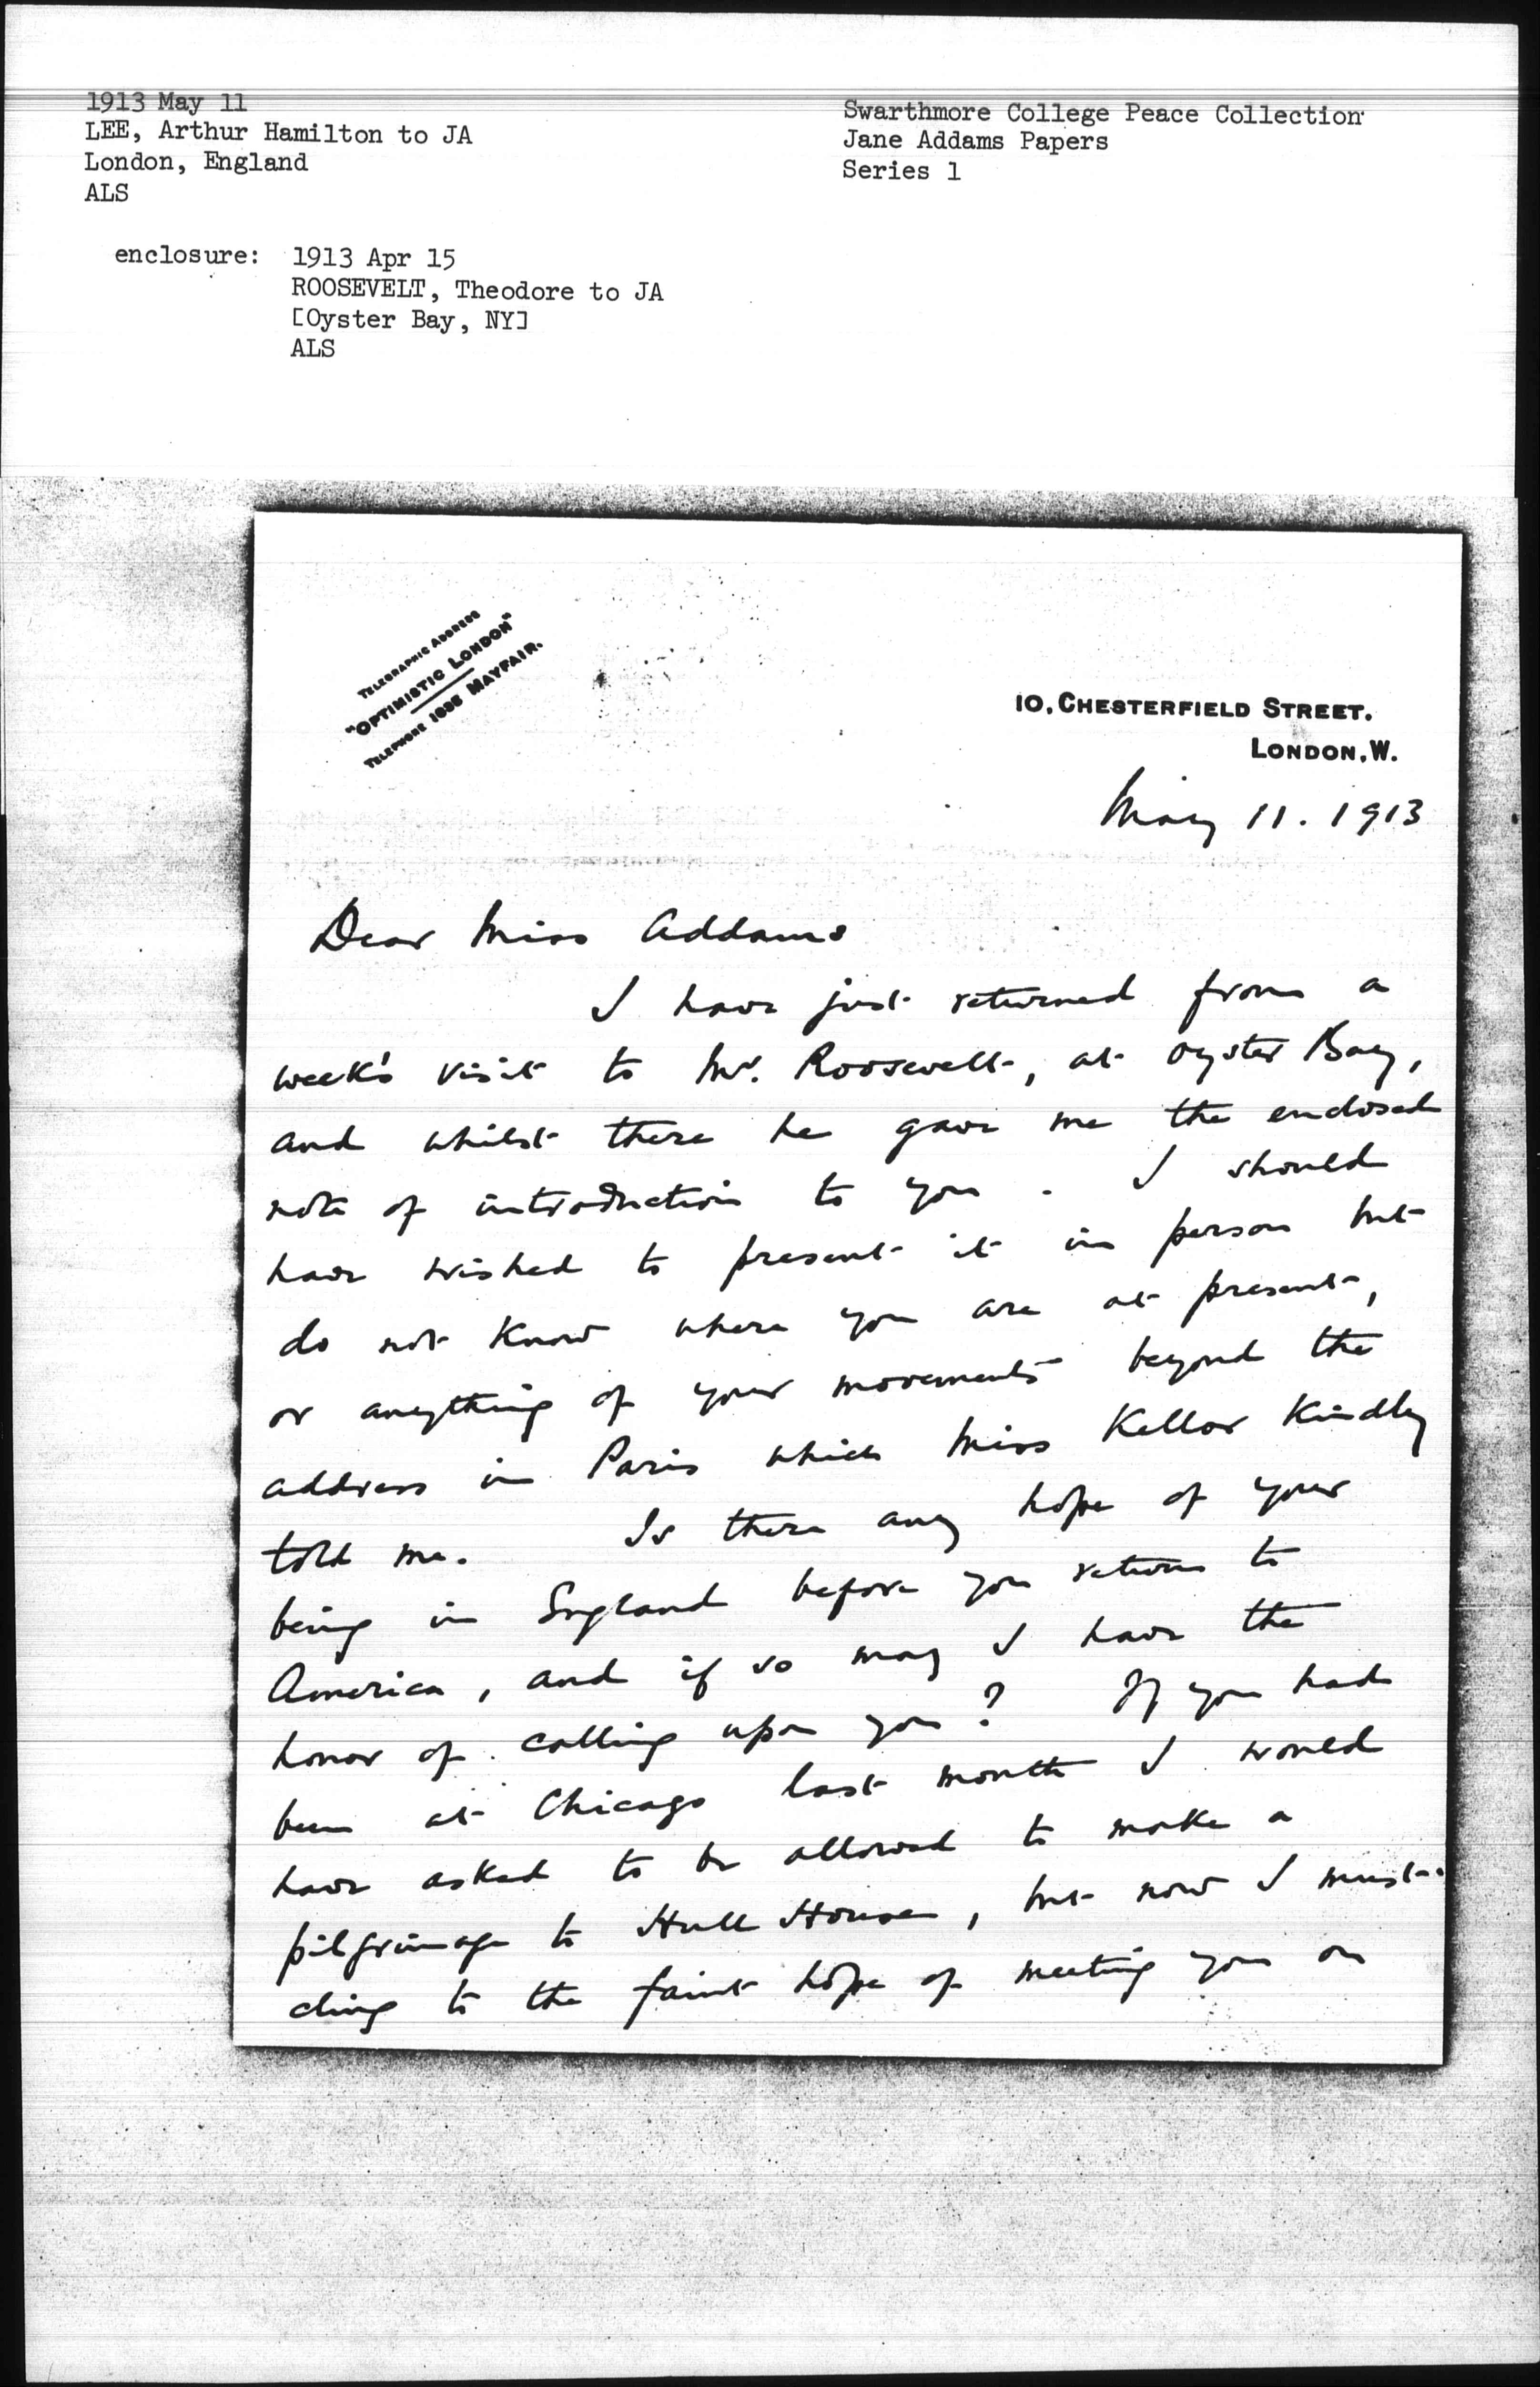 1913 May 11
LEE, Arthur Hamilton to JA
London, England
ALS
Swarthmore College Peace Collection
Jane Addams Papers
Series 1
enclosure: 1913 Apr 15
ROOSEVELT, Theodore to JA
[Oyster Bay, NY]
ALS
TELEGRAPHIC ADDRESS
"OPTIMISTIC LONDON"
TELEPHONE MAYFAIR.
10, CHESTERFIELD STREET.
LONDON, W.
May 11. 1913
Dear Miss Addams
I have just returned from a
week's visit to Mr. Roosevelt, at Oyster Bay,
and whilst there he gave me the enclosed
note of introduction to you. I should
have wished to present it in person but
do not know where you are at present,
or anything of your movements beyond the
address in Paris which Miss Kellor kindly
told me. Is there any hope of your
being in England before you return to
America, and if so may I have the
honor of calling upon you? If you had
been at Chicago last month I would
have asked to be allowed to make a
pilgrimage to Hull House, but now I must
cling to the faint hope of meeting you on